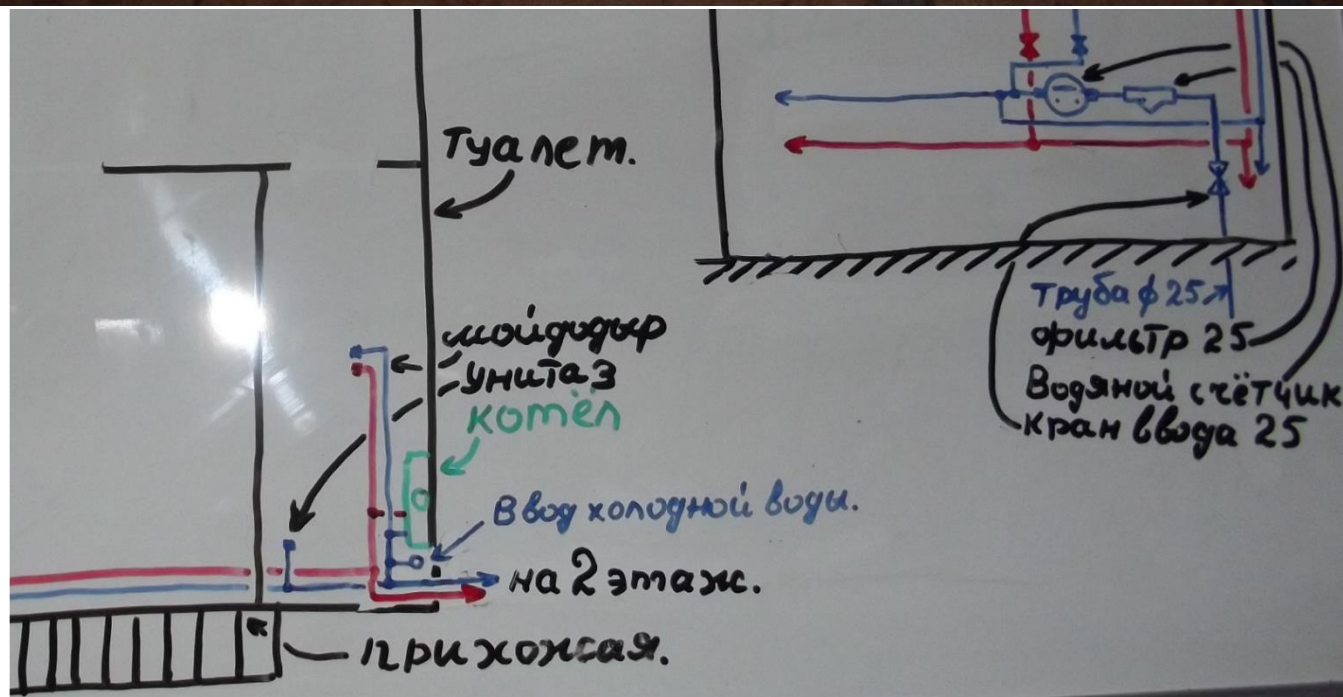 Туалет.
мойдодыр
унитаз
котёл
Ввод холодной воды.
на 2 этаж.
прихожая.
труба ф 25
фильтр 25
Водяной счётчик
кран ввода 25